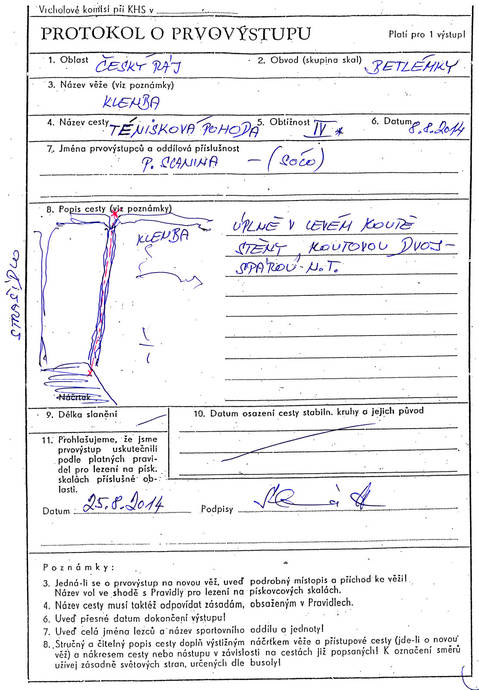 Vrcholové komisi při KHS v
PROTOKOL O PRVOVÝSTUPU
Platí pro 1 výstup!
1. Oblast ČESKÝ RÁJ 2. Obvod (skupina skal) BETLÉMKY
3. Název věže (viz poznámky)
KLENBA
4. Název cesty TÉNISKOVÁ POHODA 5. Obtížnost IV * 6. Datum 8.8.2014
7. Jména prvovýstupců a oddílová příslušnost
P. SLANINA – (SOČO)
8. Popis cesty (viz poznámky)
KLENBA
STRAŠIDLO
Náčrtek
ÚPLNĚ V LEVÉM KOUTĚ
STĚNY, KOUTOVOU DVOJ-
SPÁROU N.T.
9. Délka slanění
10. Datum osazení cesty stabiln. kruhy a jejich původ
11. Prohlašujeme, že jsme
prvovýstup uskutečnili
podle platných pravi-
del pro lezení na písk.
skalách příslušné ob-
lasti.
Datum 25.8.2014 Podpisy
Poznámky:
3. Jedná-li se o prvovýstup na novou věž, uveď podrobný místopis a příchod ke věži!
Název vol ve shodě s Pravidly pro lezení na pískovcových skalách.
4. Název cesty musí taktéž odpovídat zásadám, obsaženým v Pravidlech.
6. Uveď přesné datum dokončení výstupu!
7. Uveď celá jména lezců a název sportovního oddílu a jednoty!
8. Stručný a čitelný popis cesty doplň výstižným náčrtkem věže a přístupové cesty (jde-li o novou
věž) a nákresem cesty nebo nástupu v závislosti na cestách již popsaných! K označení směrů
užívej zásadně světových stran, určených dle busoly!